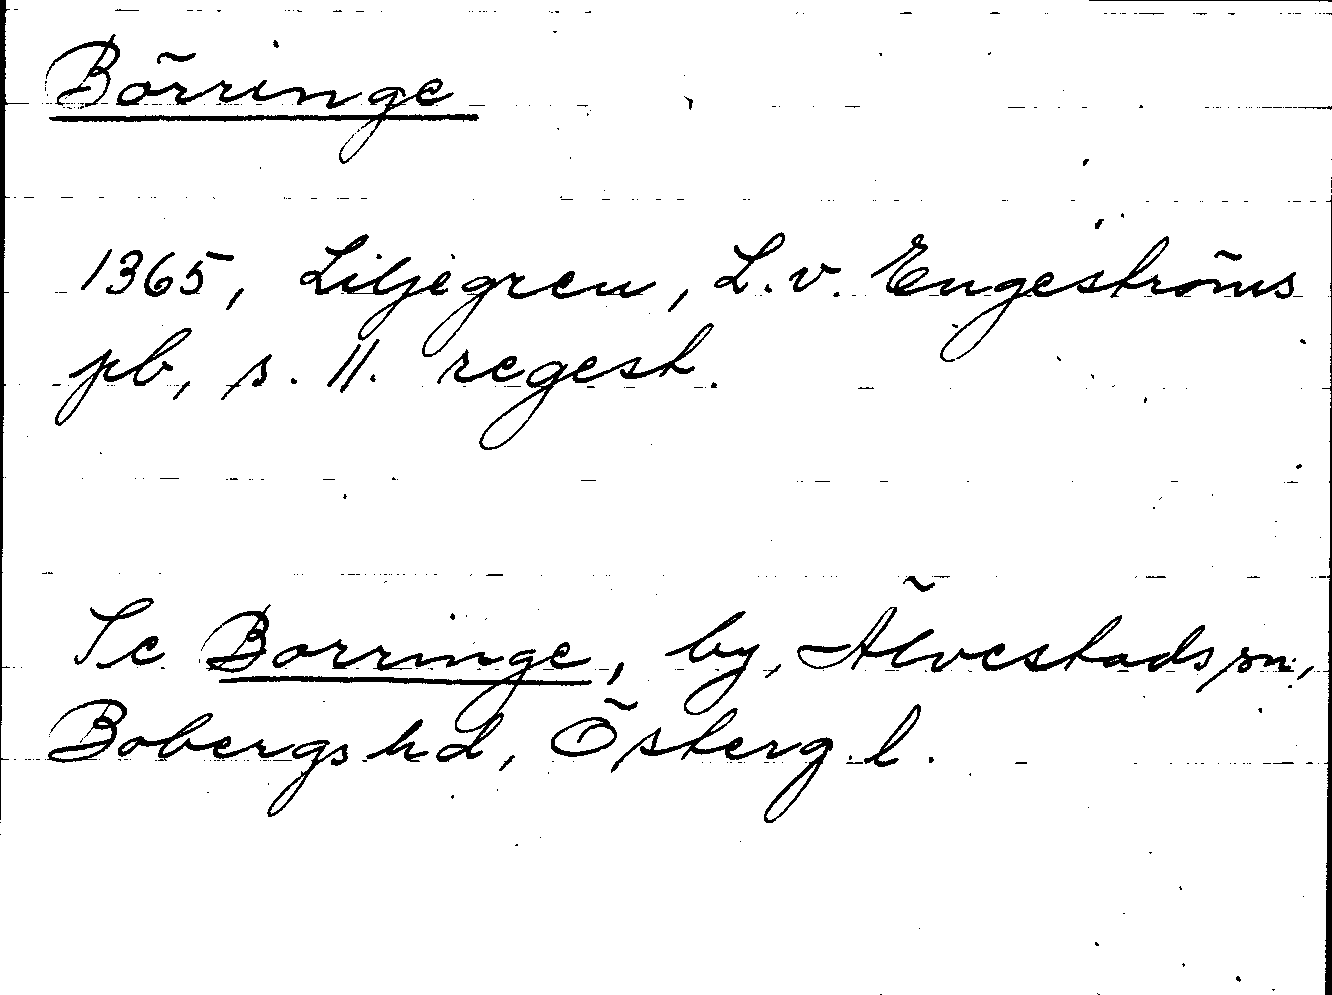 Börringe
1365, Liljegren, L. v. Engeströms
pb, s. 11. regest.
Se Borringe, by, Älvestads sn,
Bobergs hd, Österg. l.